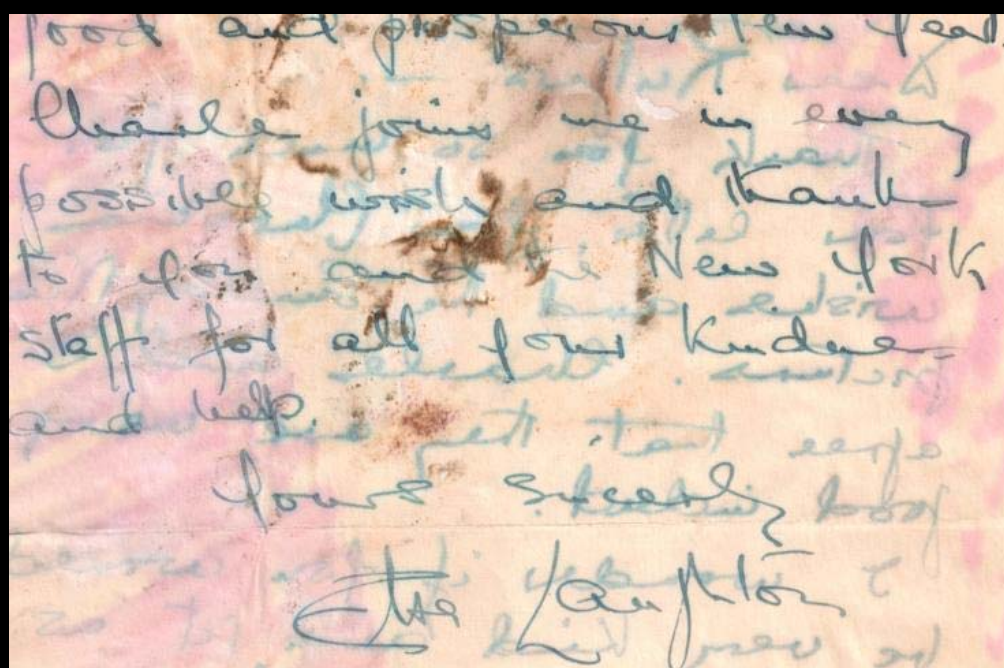 good and prosperous New Year.
Charles joins me in every
possible wish and thanks
to you and the New York
staff for all your kindness
and help.
Yours sincerely
Elsa Laughton